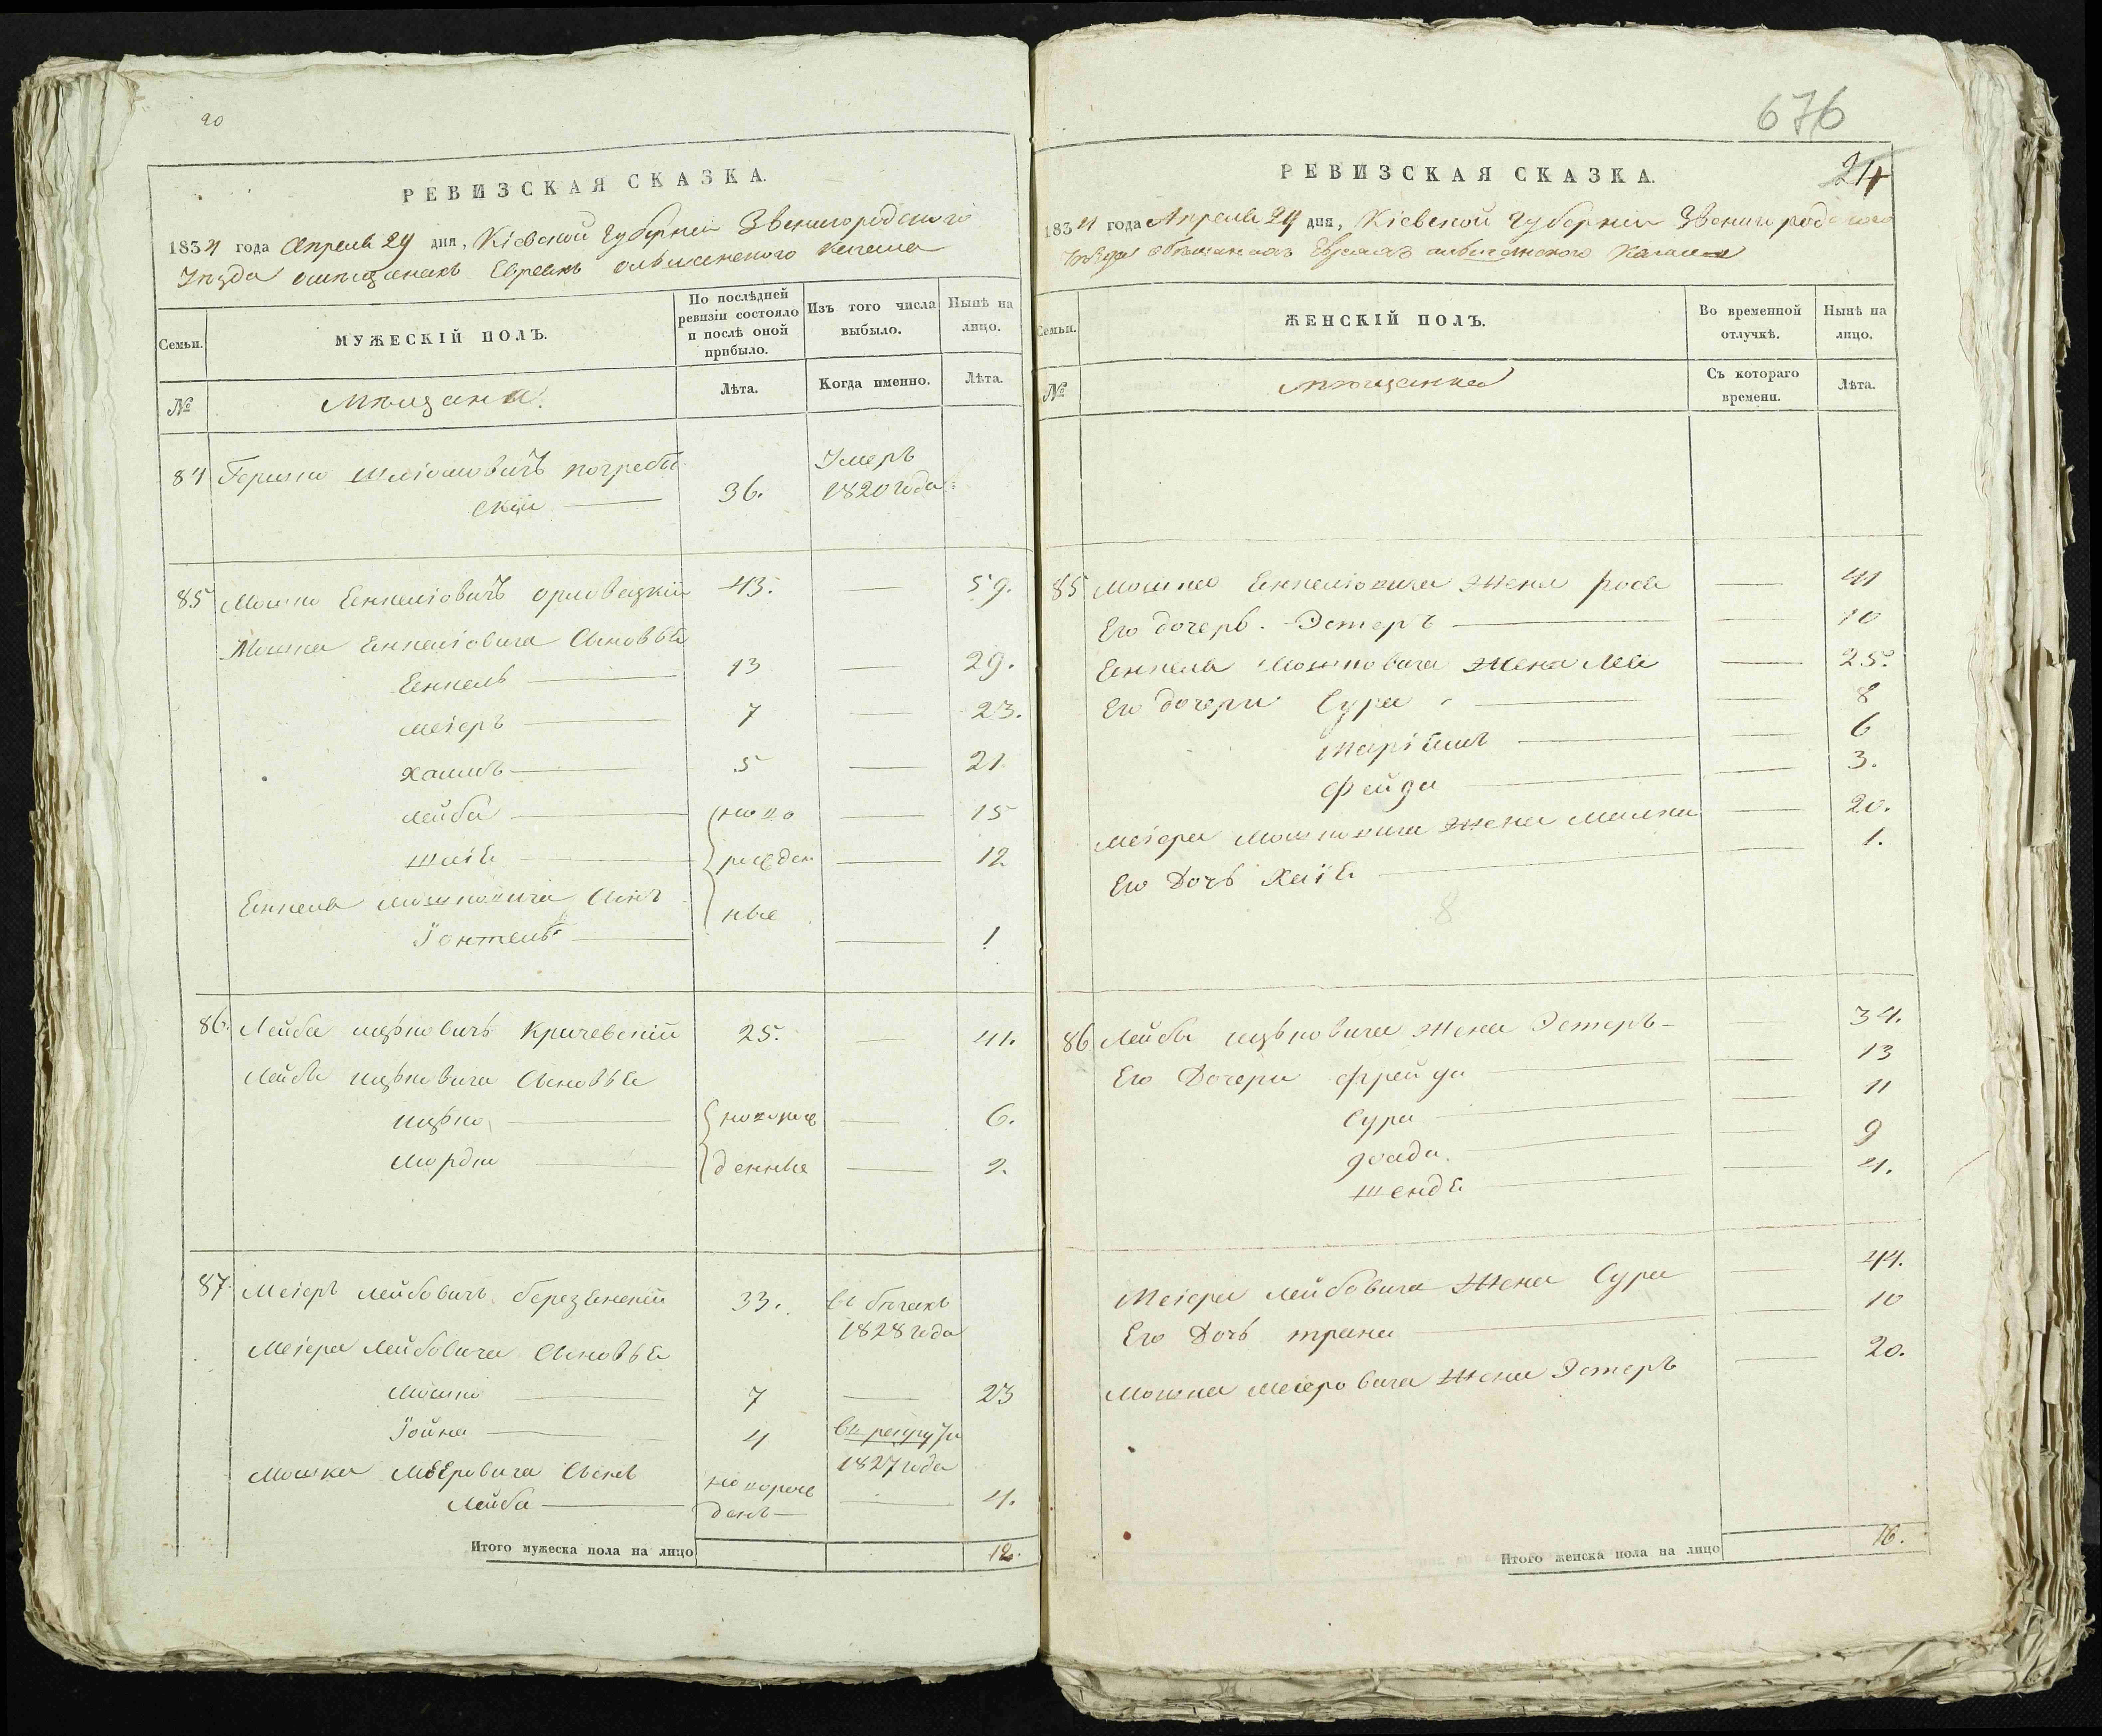 20
РЕВИЗСКАЯ СКАЗКА.
1834 года Апреля 24 дня, Кіевской Губерніи Звенигородского
Уезда омещанахъ Евреяхъ ольшанского Кагала
Семьи.
МУЖЕСКІЙ ПОЛЪ.
По послѣдней ревизіи состояло и послѣ оной прибыло.
Изъ того числа выбыло.
Нынѣ на лицо.
№
Мещане
Лѣта.
Когда именно.
Лѣта.
84 Гершко Шліомовичъ погребы
ский 36. Умеръ 1820 года
85 Мошко Еннеліовичъ орловецкій 43. — 59.
Мошка Еннеліовича Сыновья
Еннель — 13 — 29.
Меіеръ — 7 — 23.
Хаимъ — 5 — 21
Лейба — ново — 15
Шаія — рожден — 12
Еннеля Мошковича Сынъ ные
Іонтель — — 1
86. Лейба ицковичъ Кричевскій 25. — 41.
Лейбы ицковича Сыновья
ицко — новорож — 6.
Мордко — денные — 2.
87. Меіеръ Лейбовичъ березянскій 33. въ бегахъ
1828 года
Меіера Лейбовича Сыновья
Мошко — 7 — 23
Іойна — 4 въ рекруты
1827 года
Мошка Меѣровича Сынъ новорож
Лейба — денъ — 4.
Итого мужеска пола на лицо 12.
676
24
РЕВИЗСКАЯ СКАЗКА.
1834 года Апреля 24 дня, Кіевской Губерніи Звенигородского
Уезда обмещанкахъ Евреяхъ ольшанского Кагала
Семьи.
ЖЕНСКІЙ ПОЛЪ.
Во временной отлучкѣ.
Нынѣ на лицо.
№
мещанки
Съ котораго времени.
Лѣта.
85 Мошка Еннеліовича жена рося — 41
Его дочерь. Эстеръ — — 10
Еннеля Мошковича жена Лея — 25.
Его дочери Сура — — 8
Маріямъ — — 6
Фейга — — 3.
Меіера Мошковича жена Малка — 20.
Его Дочь Хаія — — 1.
8
86 Лейбы ицковича жена Эстеръ — — 34.
Его Дочери фрейда — — 13
Сура — — 11
— — 9
шендя — — 4.
Меіера Лейбовича жена Сура — 44.
Его Дочь трана — — 10
Мошка меіеровича жена Эстеръ — 20.
Итого женска пола на лицо 16.